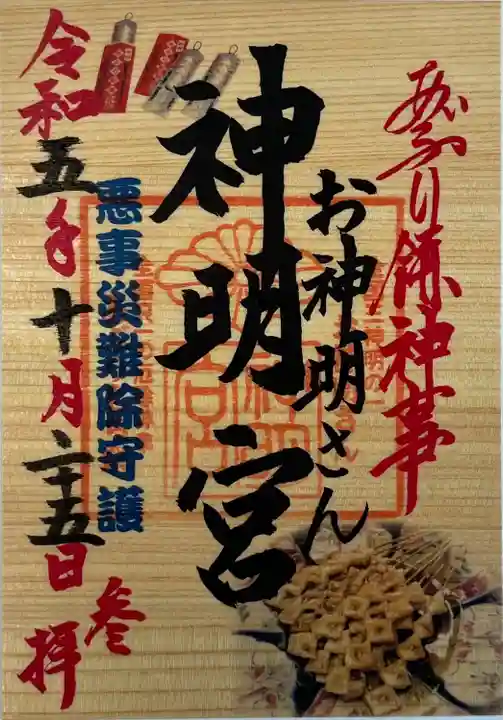 あぶり餅神事
お神明さん
神明宮
悪事災難除守護
令和五年十月二十五日
参拝